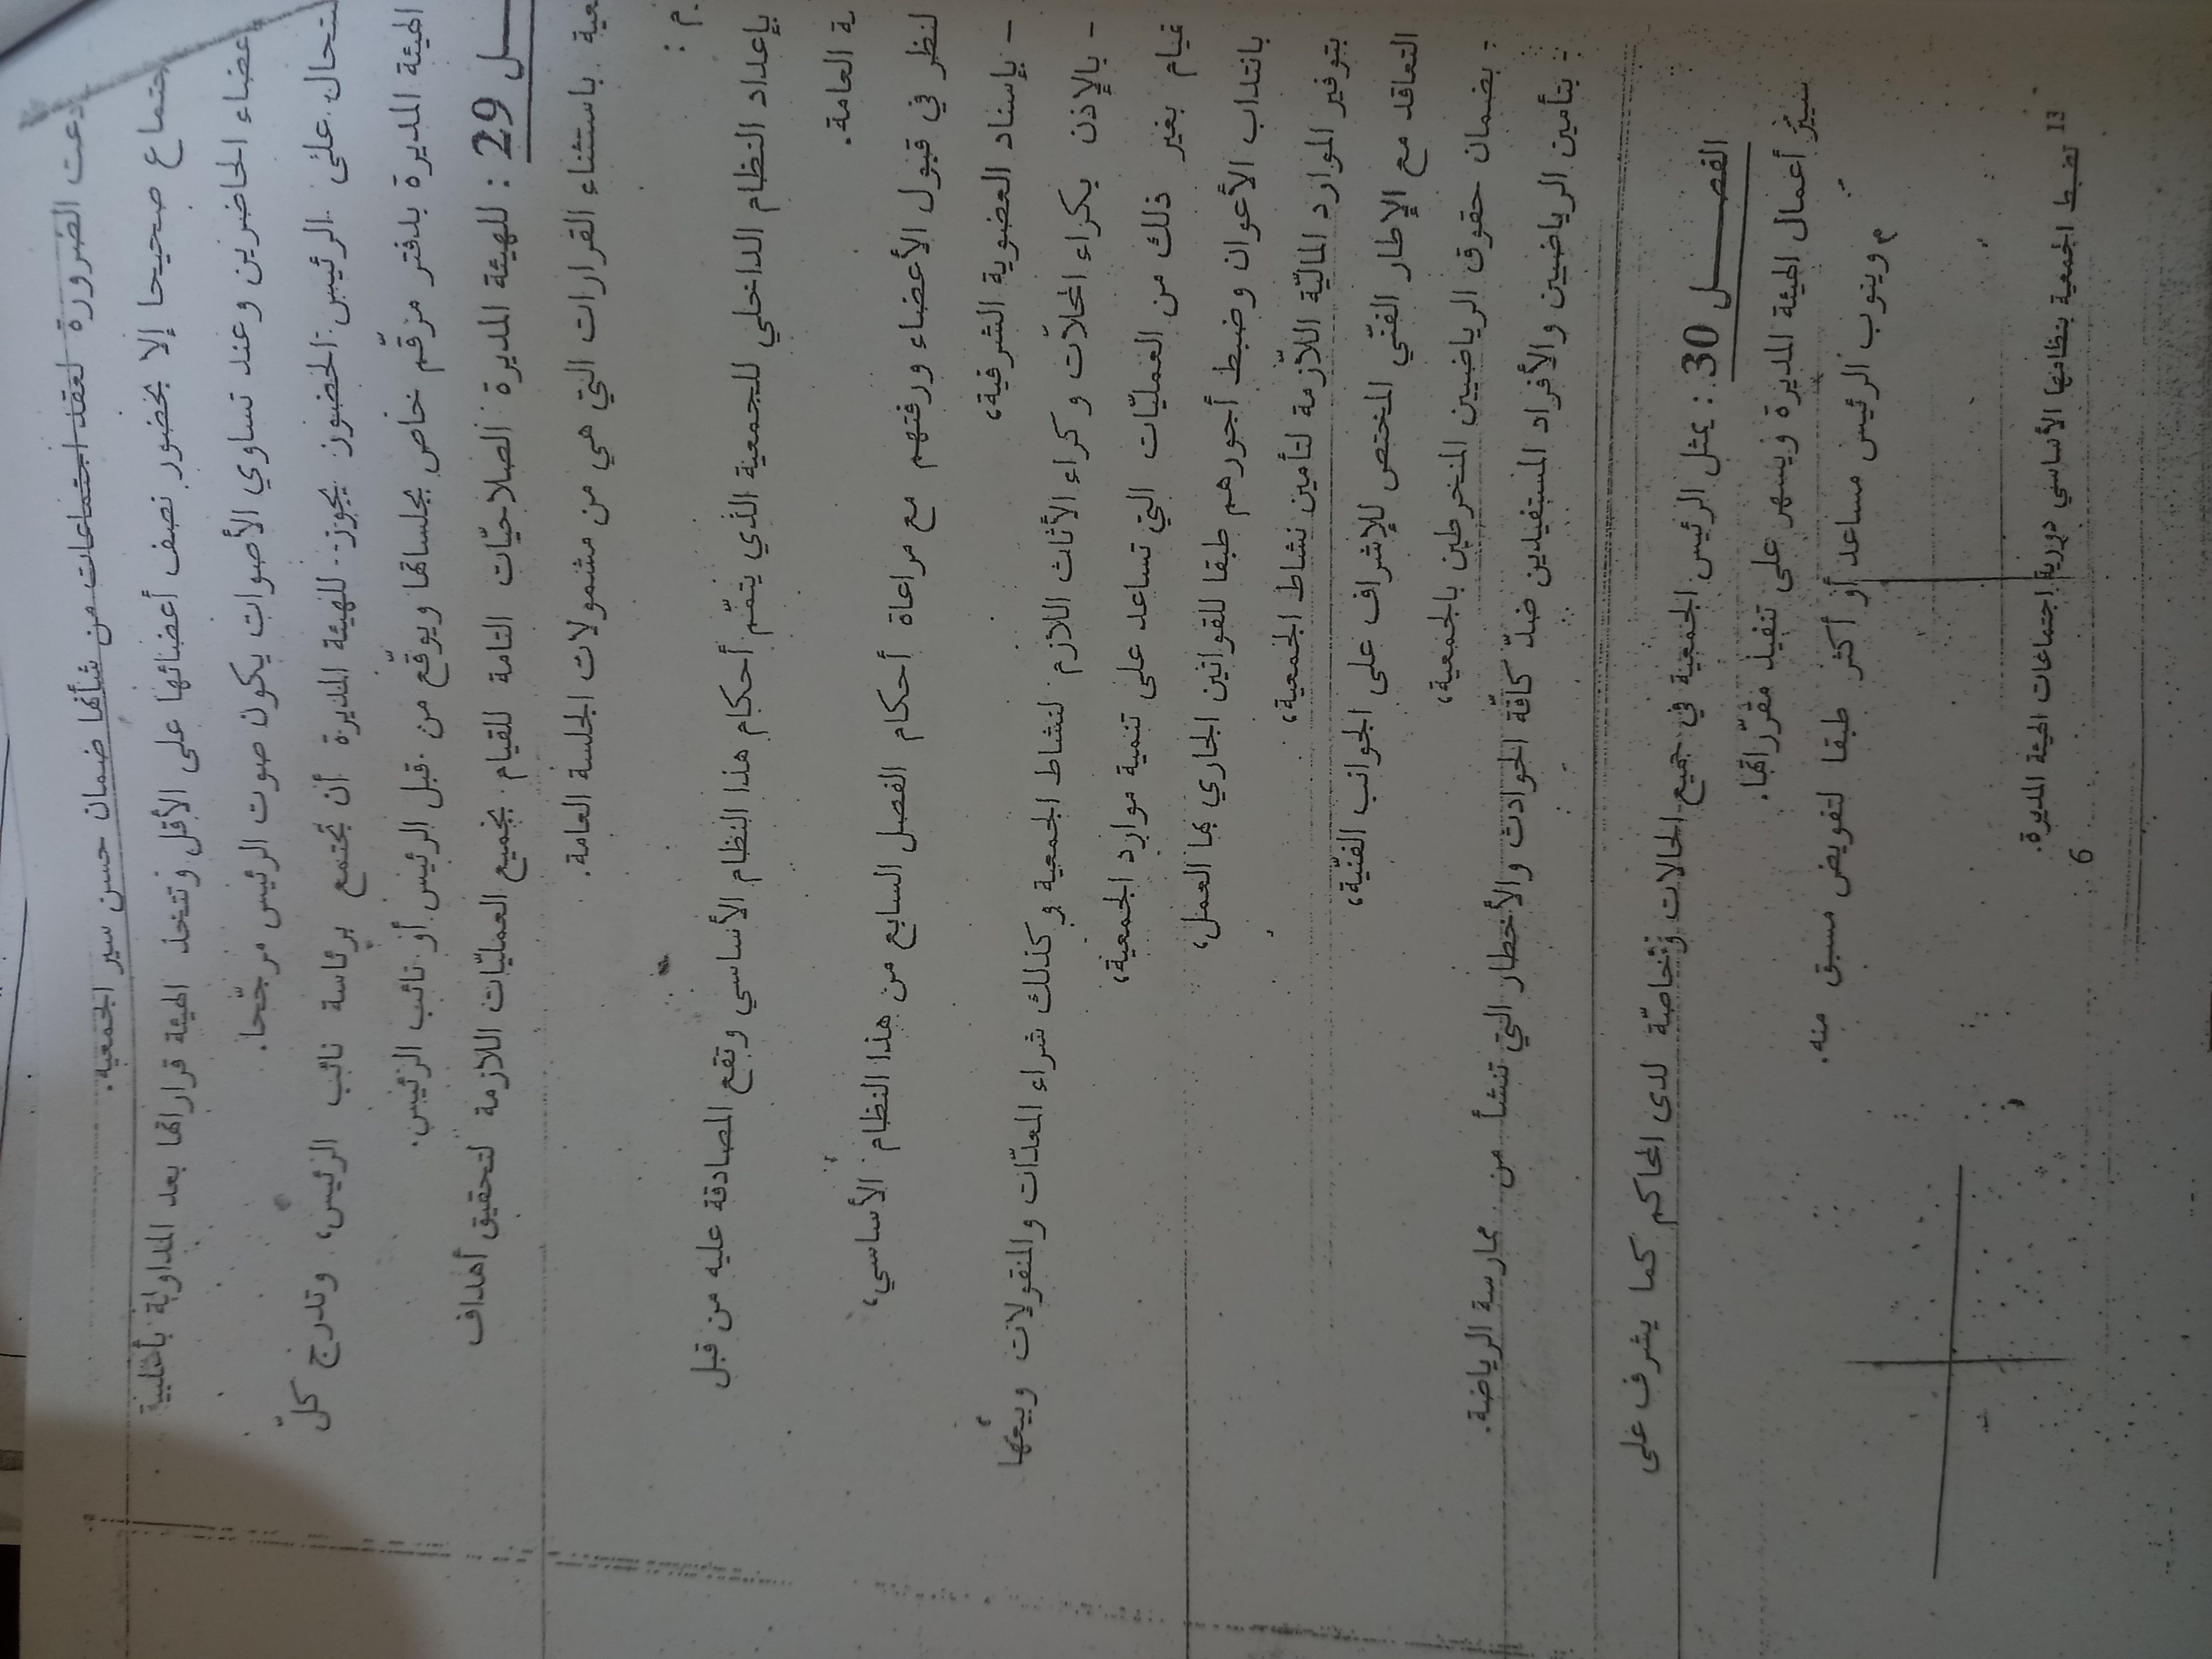 دعت الضرورة لعقد اجتماعات من شأنها ضمان حسن سير الجمعية.
جتماع صحيحا إلا بحضور نصف أعضائها على الأقل وتتخذ الهيئة قراراتها بعد المداولة بأغلبية
عضاء الحاضرين وعند تساوي الأصوات يكون صوت الرئيس مرجّحا.
ستحال على الرئيس الحضور يجوز للهيئة المديرة أن تجتمع برئاسة نائب الرئيس، وتدرج كلّ
الهيئة المديرة بدفتر مرقّم خاص بجلساتها ويوقّع من قبل الرئيس أو نائب الرئيس.
ـل 29 : للهيئة المديرة الصلاحيّات التامة للقيام بجميع العمليّات اللازمة لتحقيق أهداف
عية باستثناء القرارات التي هي من مشمولات الجلسة العامة.
م :
بإعداد النظام الداخلي للجمعية الذي يتمّم أحكام هذا النظام الأساسي وتقع المصادقة عليه من قبل
ة العامة.
لنظر في قبول الأعضاء ورفتهم مع مراعاة أحكام الفصل السابع من هذا النظام الأساسي،
- بإسناد العضوية الشرفية،
- بالإذن بكراء المحلاّت وكراء الأثاث اللازم لنشاط الجمعية وكذلك شراء المعدّات والمنقولات وبيعها
قيام بغير ذلك من العمليّات التي تساعد على تنمية موارد الجمعية،
بانتداب الأعوان وضبط أجورهم طبقا للقوانين الجاري بها العمل،
بتوفير الموارد الماليّة اللاّزمة لتأمين نشاط الجمعية،
التعاقد مع الإطار الفنّي المختص للإشراف على الجوانب الفنّية،
- بضمان حقوق الرياضيين المنخرطين بالجمعية،
- بتأمين الرياضيين والأفراد المستفيدين ضدّ كافّة الحوادث والأخطار التي تنشأ من ممارسة الرياضة.
الفصـــل 30 : يمثل الرئيس الجمعية في جميع الحالات وخاصّة لدى المحاكم كما يشرف على
سير أعمال الهيئة المديرة ويسهر على تنفيذ مقرّراتها.
وينوب الرئيس مساعد أو أكثر طبقا لتفويض مسبق منه.
13 تضبط الجمعية بنظامها الأساسي دورية اجتماعات الهيئة المديرة.
6